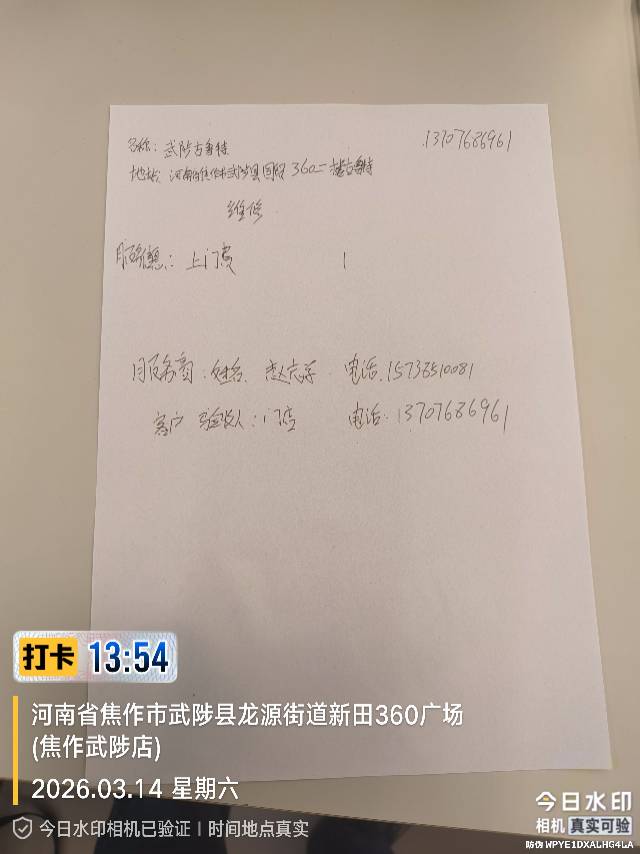 名称：武陟古鲁特 13707686961
地址：河南省焦作市武陟县 360
维修
服务信息：上门费 1
服务商：姓名： 电话：15738510081
客户 验收人：门店 电话：13707686961
打卡 13:54
河南省焦作市武陟县龙源街道新田360广场
(焦作武陟店)
2026.03.14 星期六
今日水印相机已验证 | 时间地点真实
今日水印
相机 真实可验
防伪 WPYE1DXALHG4LA